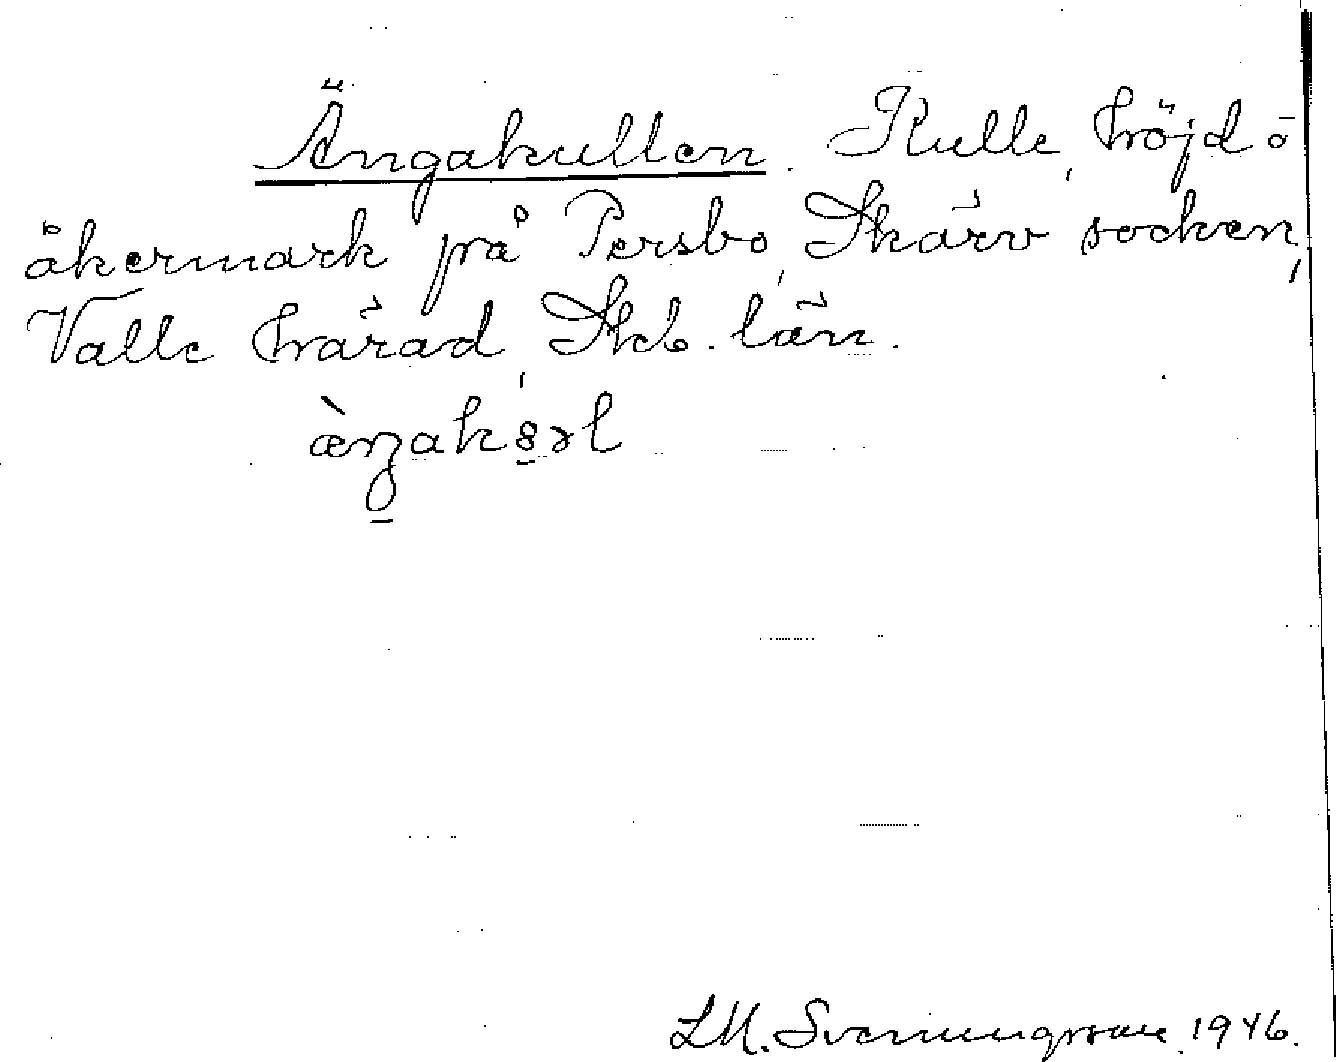 Ängakullen. Kulle, höjd o
åkermark på Persbo, Skärv socken,
Valle härad, Skb. län.
L.M. Svenungsson 1946.